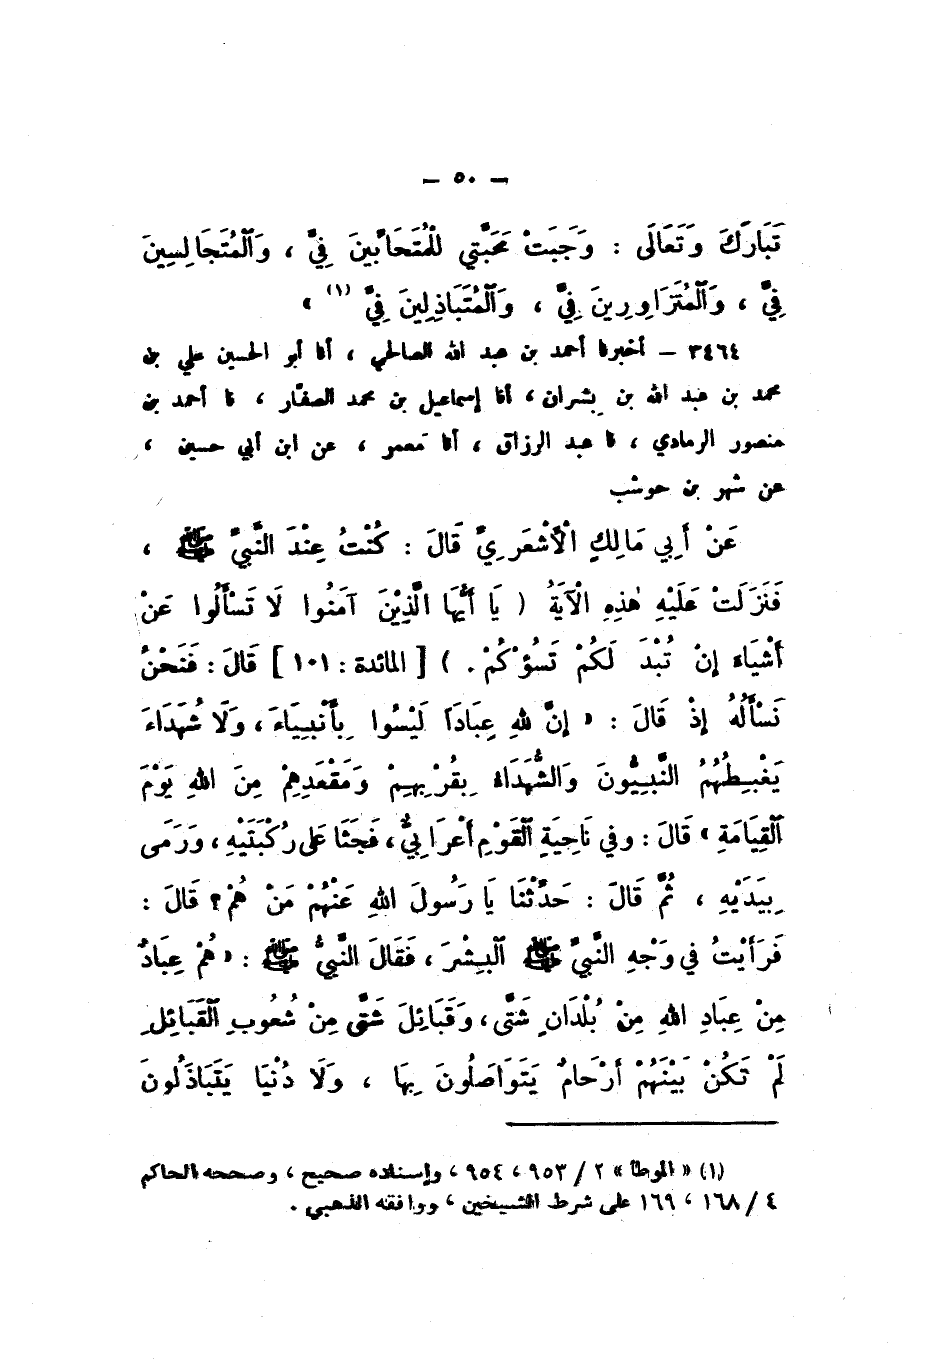 — ٥٠ —
تَبَارَكَ وَتَعَالَى : وَجَبَتْ مَحَبَّتِي لِلْمُتَحَابِّينَ فِيَّ ، وَٱلْمُتَجَالِسِينَ
فِيَّ ، وَٱلْمُتَزَاوِرِينَ فِيَّ ، وَٱلْمُتَبَاذِلِينَ فِيَّ (١) »
٣٤٦٤ — أخبرنا أحمد بن عبد الله الصالحي ، أنا أبو الحسين علي بن
محمد بن عبد الله بن بشران ، أنا إسماعيل بن محمد الصفّار ، نا أحمد بن
منصور الرمادي ، نا عبد الرزاق ، أنا مَعمر ، عن ابن أبي حسين ،
عن شهر بن حوشب
عَنْ أَبِي مَالِكٍ الْأَشْعَرِيِّ قَالَ : كُنْتُ عِنْدَ النَّبِيِّ ﷺ ،
فَنَزَلَتْ عَلَيْهِ هٰذِهِ الْآيَةُ ( يَا أَيُّهَا الَّذِيْنَ آمَنُوا لَا تَسْأَلُوا عَنْ
أَشْيَاءَ إِنْ تُبْدَ لَكُمْ تَسُؤْكُمْ . ) [ المائدة : ١٠١ ] قَالَ : فَنَحْنُ
نَسْأَلُهُ إِذْ قَالَ : « إِنَّ لِلهِ عِبَادَاً لَيْسُوا بِأَنْبِيَاءَ ، وَلَا شُهَدَاءَ
يَغْبِطُهُمُ النَّبِيُّونَ وَالشُّهَدَاءُ بِقُرْبِهِمْ وَمَقْعَدِهِمْ مِنَ اللهِ يَوْمَ
ٱلْقِيَامَةِ » قَالَ : وفي نَاحِيَةِ ٱلْقَوْمِ أَعْرَابِيٌّ ، فَجَثَا عَلى رُكْبَتَيْهِ ، وَرَمَى
بِيَدَيْهِ ، ثُمَّ قَالَ : حَدِّثْنَا يَا رَسُولَ اللهِ عَنْهُمْ مَنْ هُمْ ؟ قَالَ :
فَرَأَيْتُ في وَجْهِ النَّبِيِّ ﷺ ٱلْبِشْرَ ، فَقَالَ النَّبِيُّ ﷺ : « هُمْ عِبَادٌ
مِنْ عِبَادِ اللهِ مِنْ بُلْدَانٍ شَتَّى ، وَقَبَائِلَ شَتَّى مِنْ شُعُوبِ ٱلْقَبَائِلِ
لَمْ تَكُنْ بَيْنَهُمْ أَرْحَامٌ يَتَوَاصَلُونَ بِهَا ، وَلَا دُنْيَا يَتَبَاذَلُونَ
(١) « الموطأ » ٢ / ٩٥٣ ، ٩٥٤ ، وإسناده صحيح ، وصححه الحاكم
٤ / ١٦٨ ، ١٦٩ على شرط الشيخين ، ووافقه الذهبي .